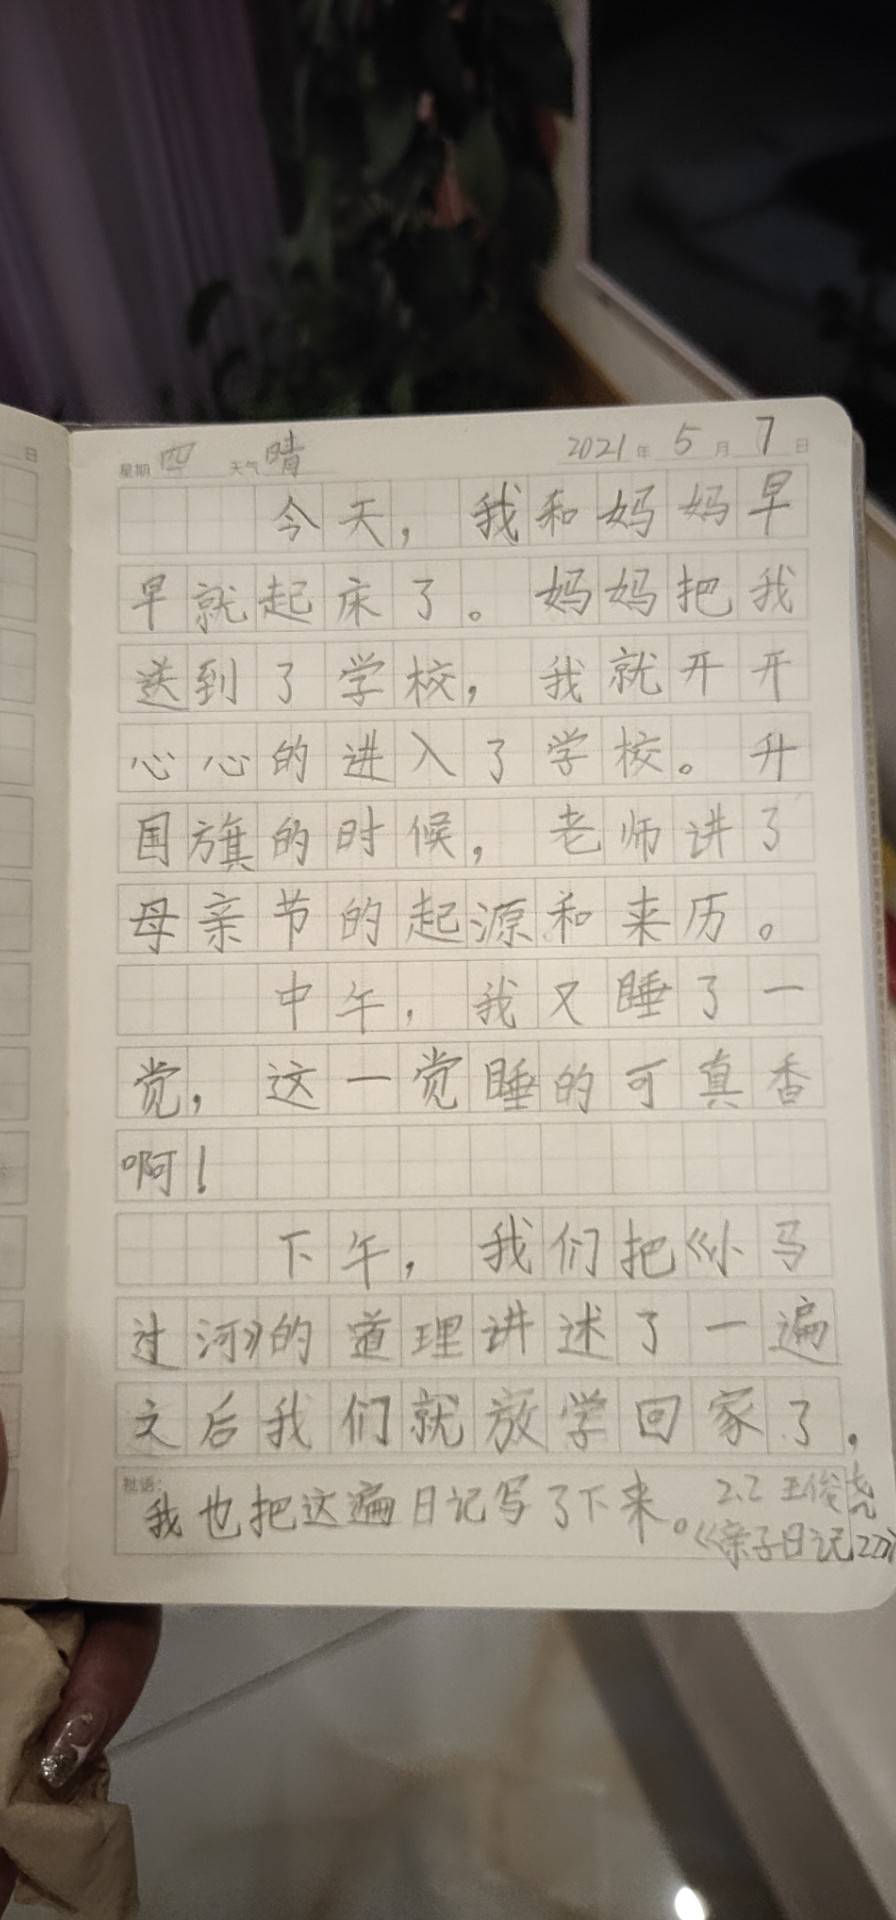 日
星期 四 天气 晴 2021年 5月 7日
今天，我和妈妈早
早就起床了。妈妈把我
送到了学校，我就开开
心心的进入了学校。升
国旗的时候，老师讲了
母亲节的起源和来历。
中午，我又睡了一
觉，这一觉睡的可真香
啊！
下午，我们把《小马
过河》的道理讲述了一遍
文后我们就放学回家了，
批语：
我也把这遍日记写了下来。
2.2 王俊尧
《亲子日记